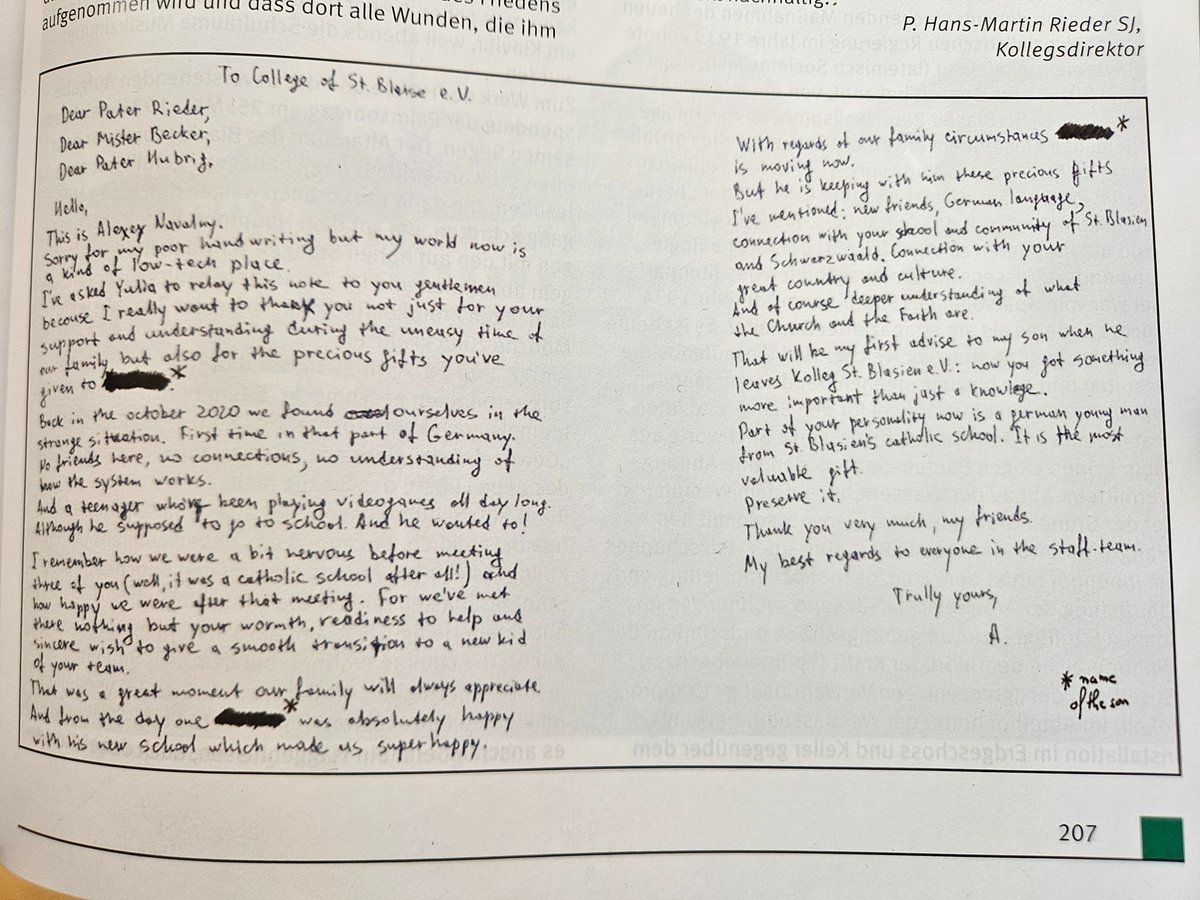 aufgenommen wird und dass dort alle Wunden, die ihm
P. Hans-Martin Rieder SJ,
Kollegsdirektor
To College of St. Blaise e.V.
Dear Pater Rieder,
Dear Mister Becker,
Dear Pater Hubrig,
Hello,
This is Alexey Navalny.
Sorry for my poor handwriting but my world now is
a kind of low-tech place.
I've asked Yulia to relay this note to you gentlemen
becouse I really want to thank you not just for your
support and understanding during the uneasy time of
our family but also for the precious gifts you've
given to *
Back in the october 2020 we found ourselves in the
strange situation. First time in that part of Germany.
No friends here, no connections, no understanding of
how the system works.
And a teenager who's been playing videogames all day long.
Although he supposed to go to school. And he wanted to!
I remember how we were a bit nervous before meeting
three of you (well, it was a catholic school after all!) and
how happy we were after that meeting. For we've met
there nothing but your wormth, readiness to help and
sincere wish to give a smooth transition to a new kid
of your team.
That was a great moment our family will always appreciate.
And from the day one * was absolutely happy
with his new school which made us super happy.
With regards of our family circumstances *
is moving now.
But he is keeping with him these precious gifts
I've mentioned: new friends, German language,
connection with your school and community of St. Blasien
and Schwarzwaald. Connection with your
great country and culture.
And of course deeper understanding of what
the Church and the Faith are.
That will be my first advise to my son when he
leaves Kolleg St. Blasien e.V.: now you got something
more important than just a knowlege.
Part of your personality now is a german young man
from St. Blasien's catholic school. It is the most
valuable gift.
Preserve it.
Thank you very much, my friends.
My best regards to everyone in the staff-team.
Trully yours,
A.
* name
of the son
207